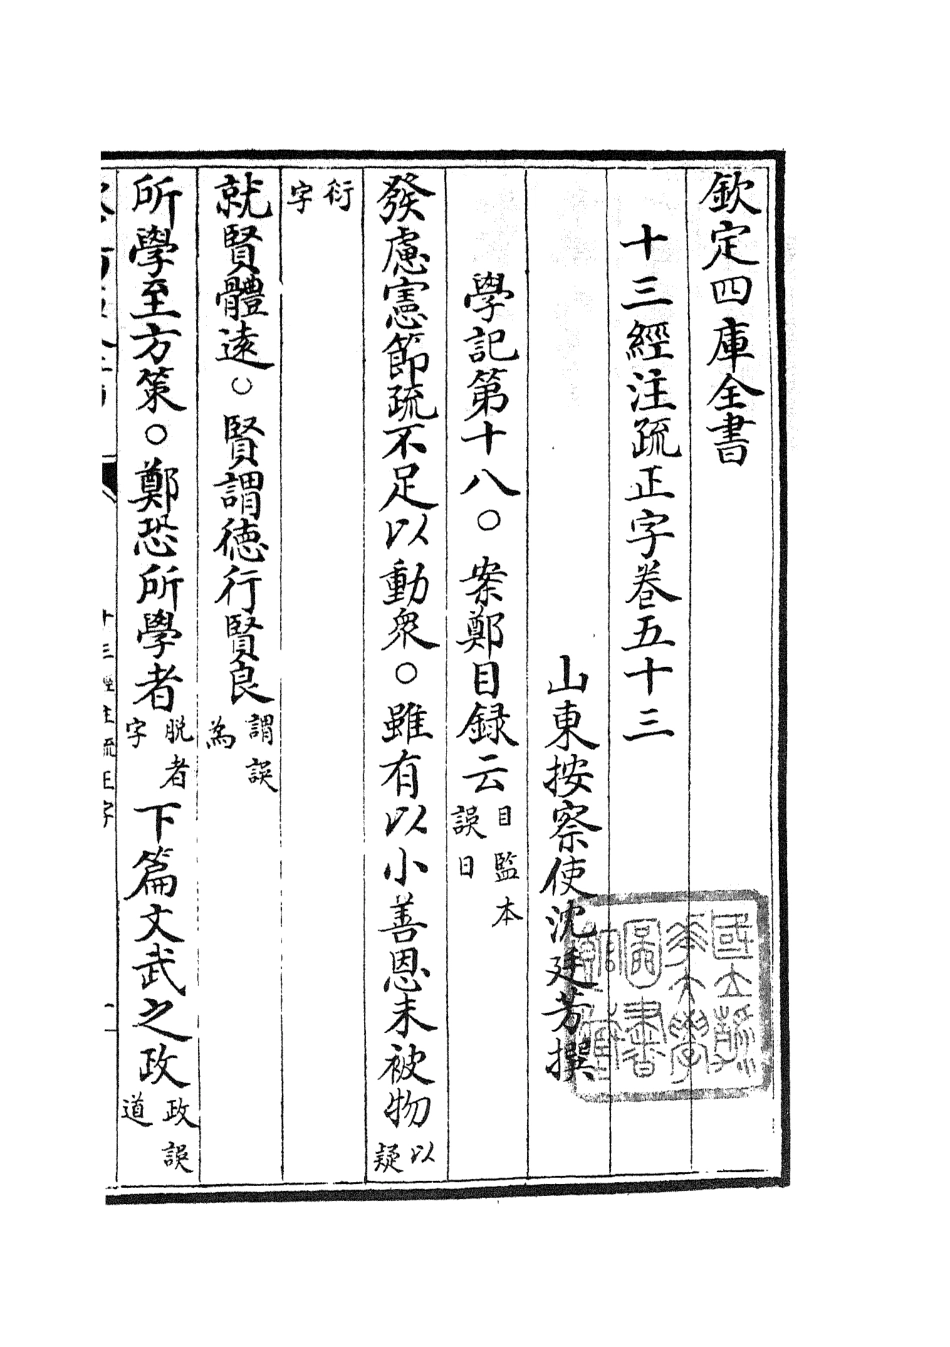 欽定四庫全書
十三經注疏正字卷五十三
山東按察使沈廷芳撰
學記第十八○案鄭目録云目監本誤日
發慮憲節疏不足以動衆○雖有以小善恩未被物以疑
衍字
就賢體遠○賢謂德行賢良謂誤為
所學至方策○鄭恐所學者脱者字下篇文武之政政誤道
十三經注疏正字